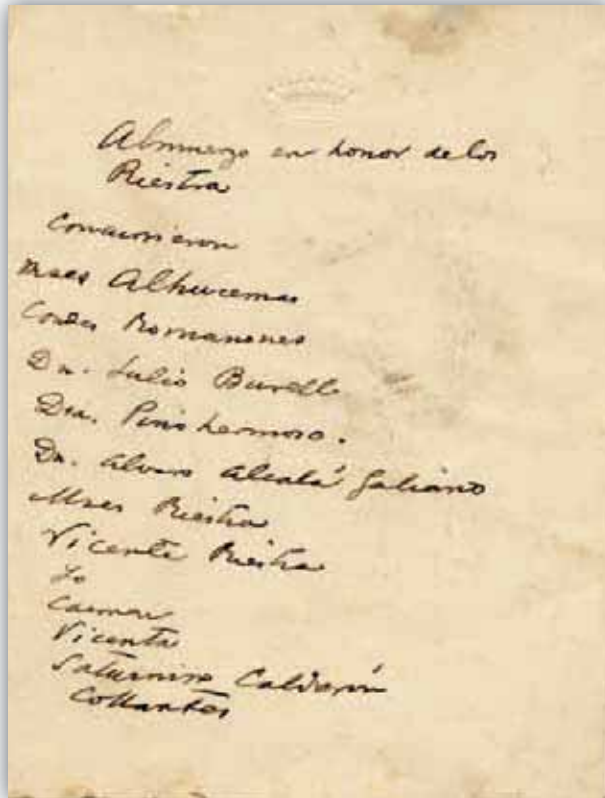 Almuerzo en honor de los
Riestra
Concurrieron
Mses Alhucemas
Condes Romanones
Dn. Julio Burell
Dsa. Pinohermoso.
Dn. Alvaro Alcalá Galiano
Mses Riestra
Vicente Riestra
Yo
Carmen
Vicenta
Saturnino Calderón
Collantes